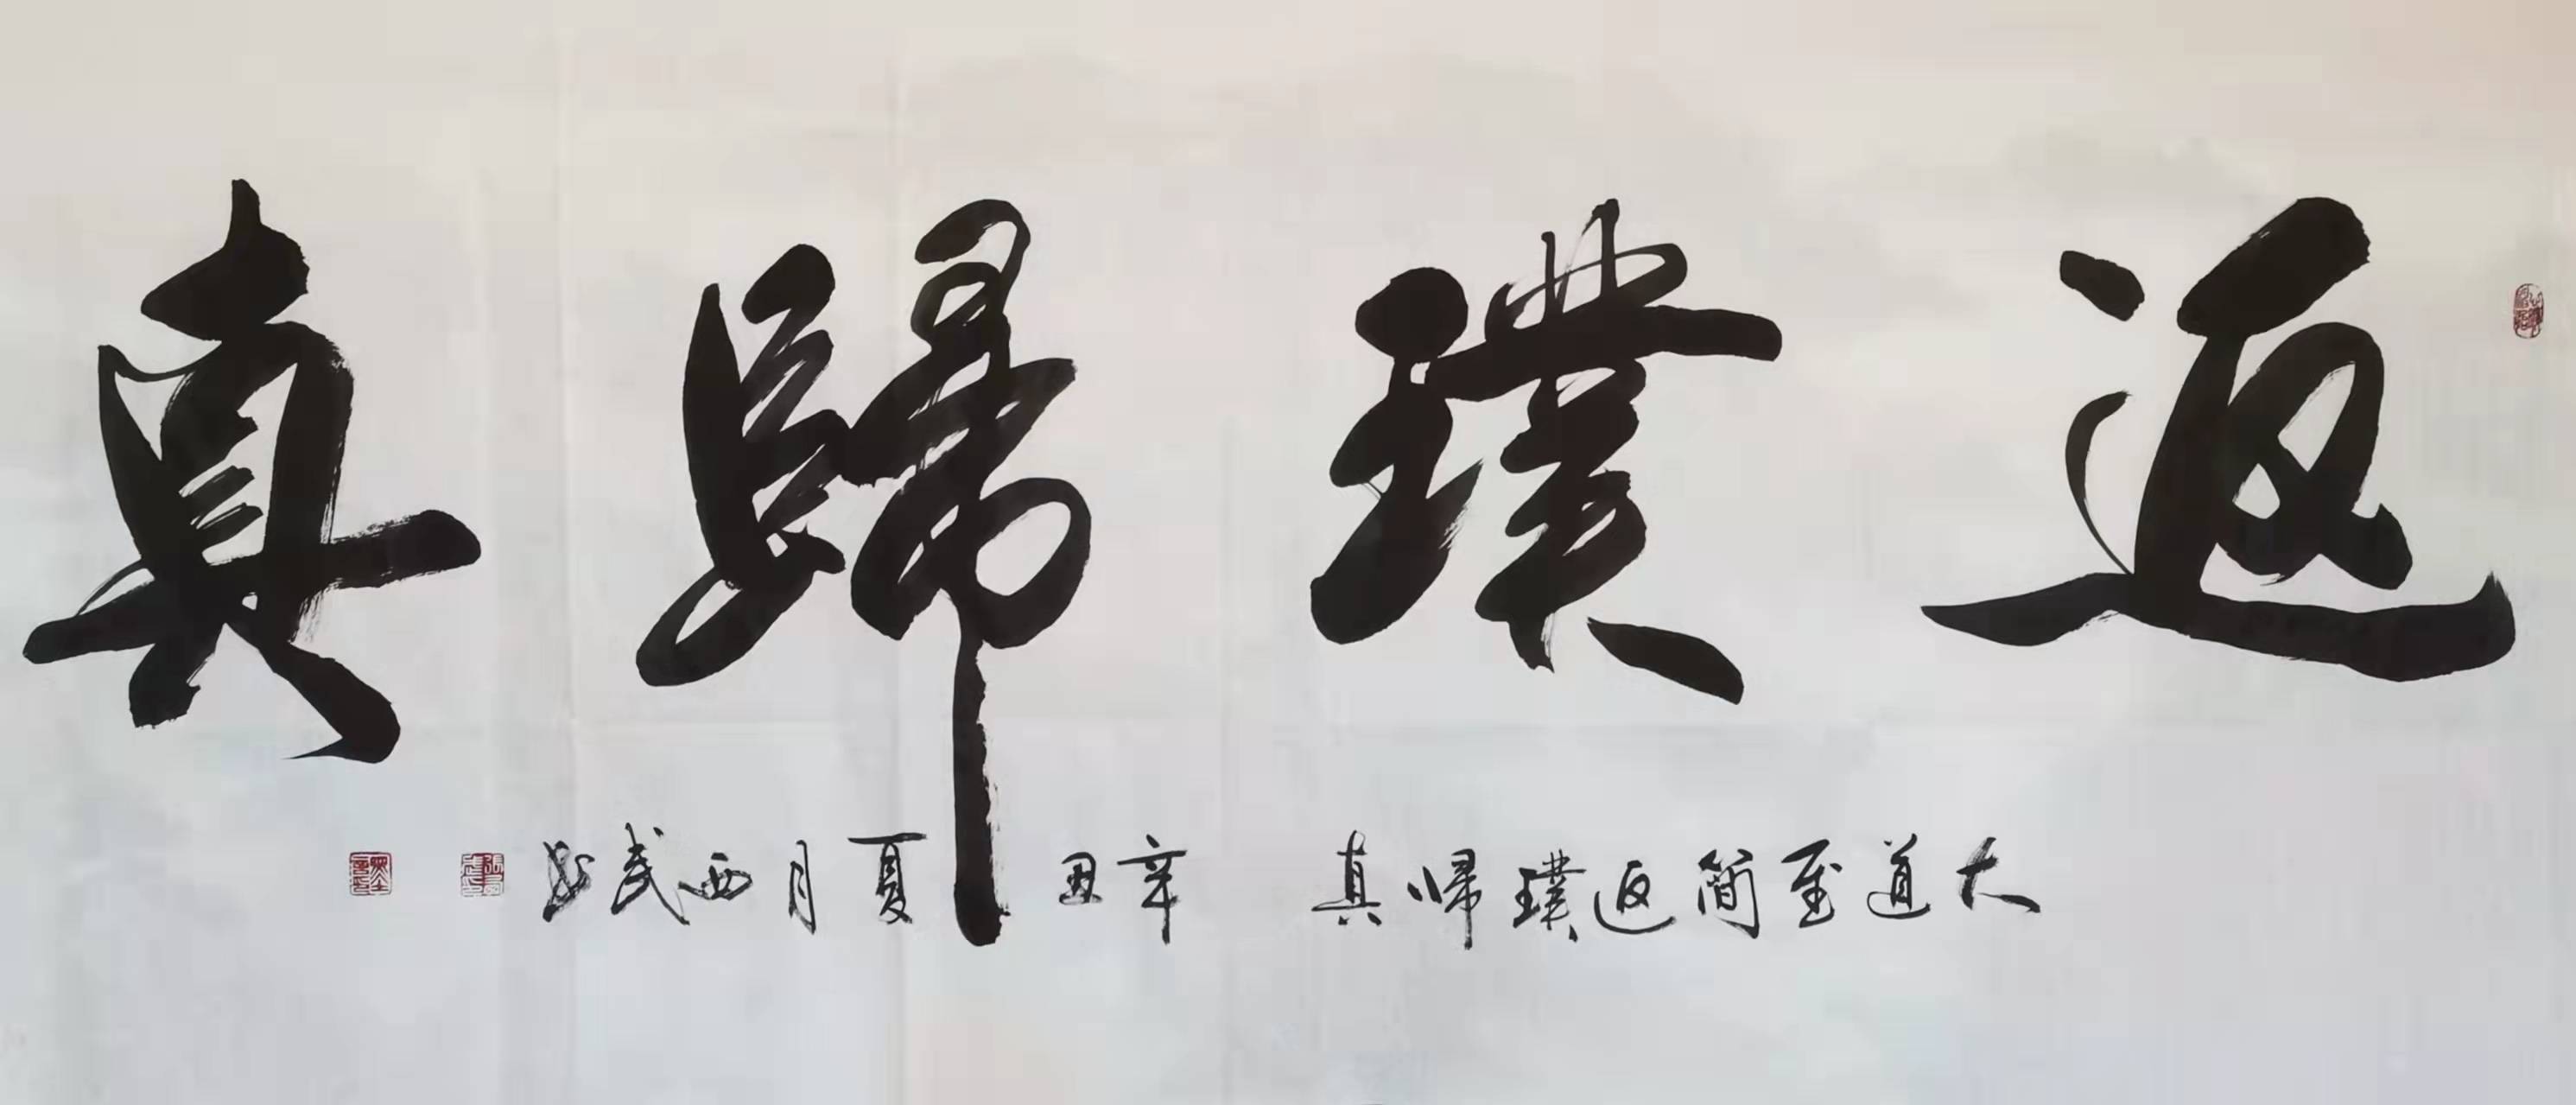 返璞歸真
大道至簡返璞歸真 辛丑夏月西武書